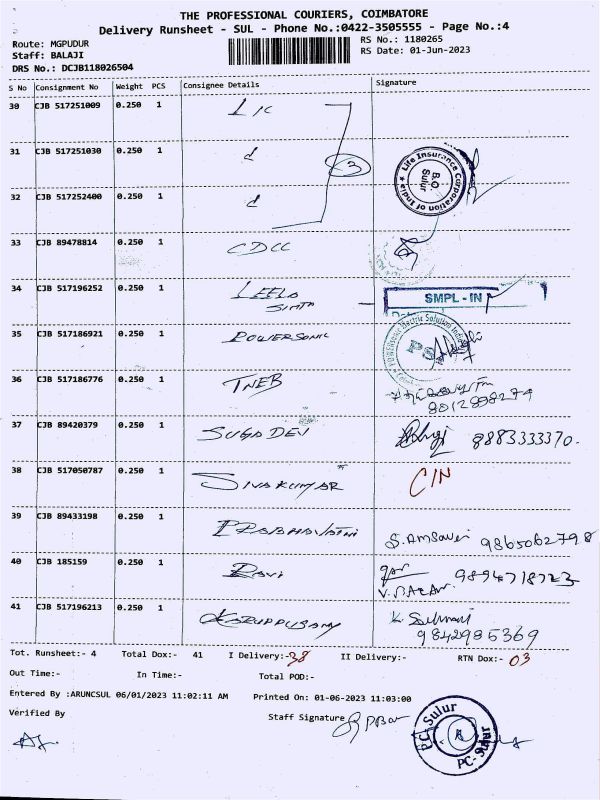 THE PROFESSIONAL COURIERS, COIMBATORE
Delivery Runsheet - SUL - Phone No.:0422-3505555 - Page No.:4
Route: MGPUDUR RS No.: 1180265
Staff: BALAJI RS Date: 01-Jun-2023
DRS No.: DCJB118026504
S No Consignment No Weight PCS Consignee Details Signature
30 CJB 517251009 0.250 1 LIC
31 CJB 517251030 0.250 1 d 3
Life Insurance Corporation of India
B.O. Sulur
32 CJB 517252400 0.250 1 d
33 CJB 89478814 0.250 1 CDCC
34 CJB 517196252 0.250 1 LEELA
SMPL - IN
35 CJB 517186921 0.250 1 POWERSONIC
PSI
36 CJB 517186776 0.250 1 TNEB
8012898274
37 CJB 89420379 0.250 1 SUGADEV 8883333370.
38 CJB 517050787 0.250 1 SIVAKUMAR C/N
39 CJB 89433198 0.250 1 PRABHAVATHI 9865062798
40 CJB 185159 0.250 1 Ravi 9894718723
41 CJB 517196213 0.250 1 KARUPPUSAMY
9842985369
Tot. Runsheet:- 4 Total Dox:- 41 I Delivery:- 38 II Delivery:- RTN Dox:- 03
Out Time:- In Time:- Total POD:-
Entered By :ARUNCSUL 06/01/2023 11:02:11 AM Printed On: 01-06-2023 11:03:00
Verified By Staff Signature
PC Sulur
PC-Sulur